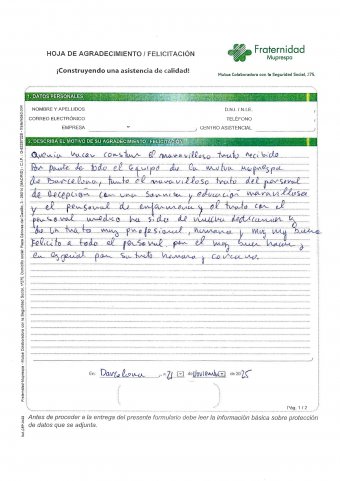 HOJA DE AGRADECIMIENTO / FELICITACIÓN
Fraternidad
Muprespa
¡Construyendo una asistencia de calidad!
Mutua Colaboradora con la Seguridad Social, 275
1. DATOS PERSONALES
NOMBRE Y APELLIDOS
D.N.I. / N.I.E.
CORREO ELECTRÓNICO
TELÉFONO
EMPRESA
CENTRO ASISTENCIAL
2. DESCRIBA EL MOTIVO DE SU AGRADECIMIENTO / FELICITACIÓN
Queria hacer constar el maravilloso trato recibido
por parte de todo el equipo de la mutua Muprespa
de Barcelona, tanto el maravilloso trato del personal
de recepcion con una sonrisa y educacion maravillosa
y el personal de enfermeria y el trato con el
personal medico ha sido de
de un trato muy profesional, humano y muy muy bueno
Felicito a todo el personal por el muy buen hacer y
en especial por su trato humano y cercano.
En Barcelona, a 21 de Noviembre de 2025
Pág. 1 / 2
Antes de proceder a la entrega del presente formulario debe leer la información básica sobre protección
de datos que se adjunta.